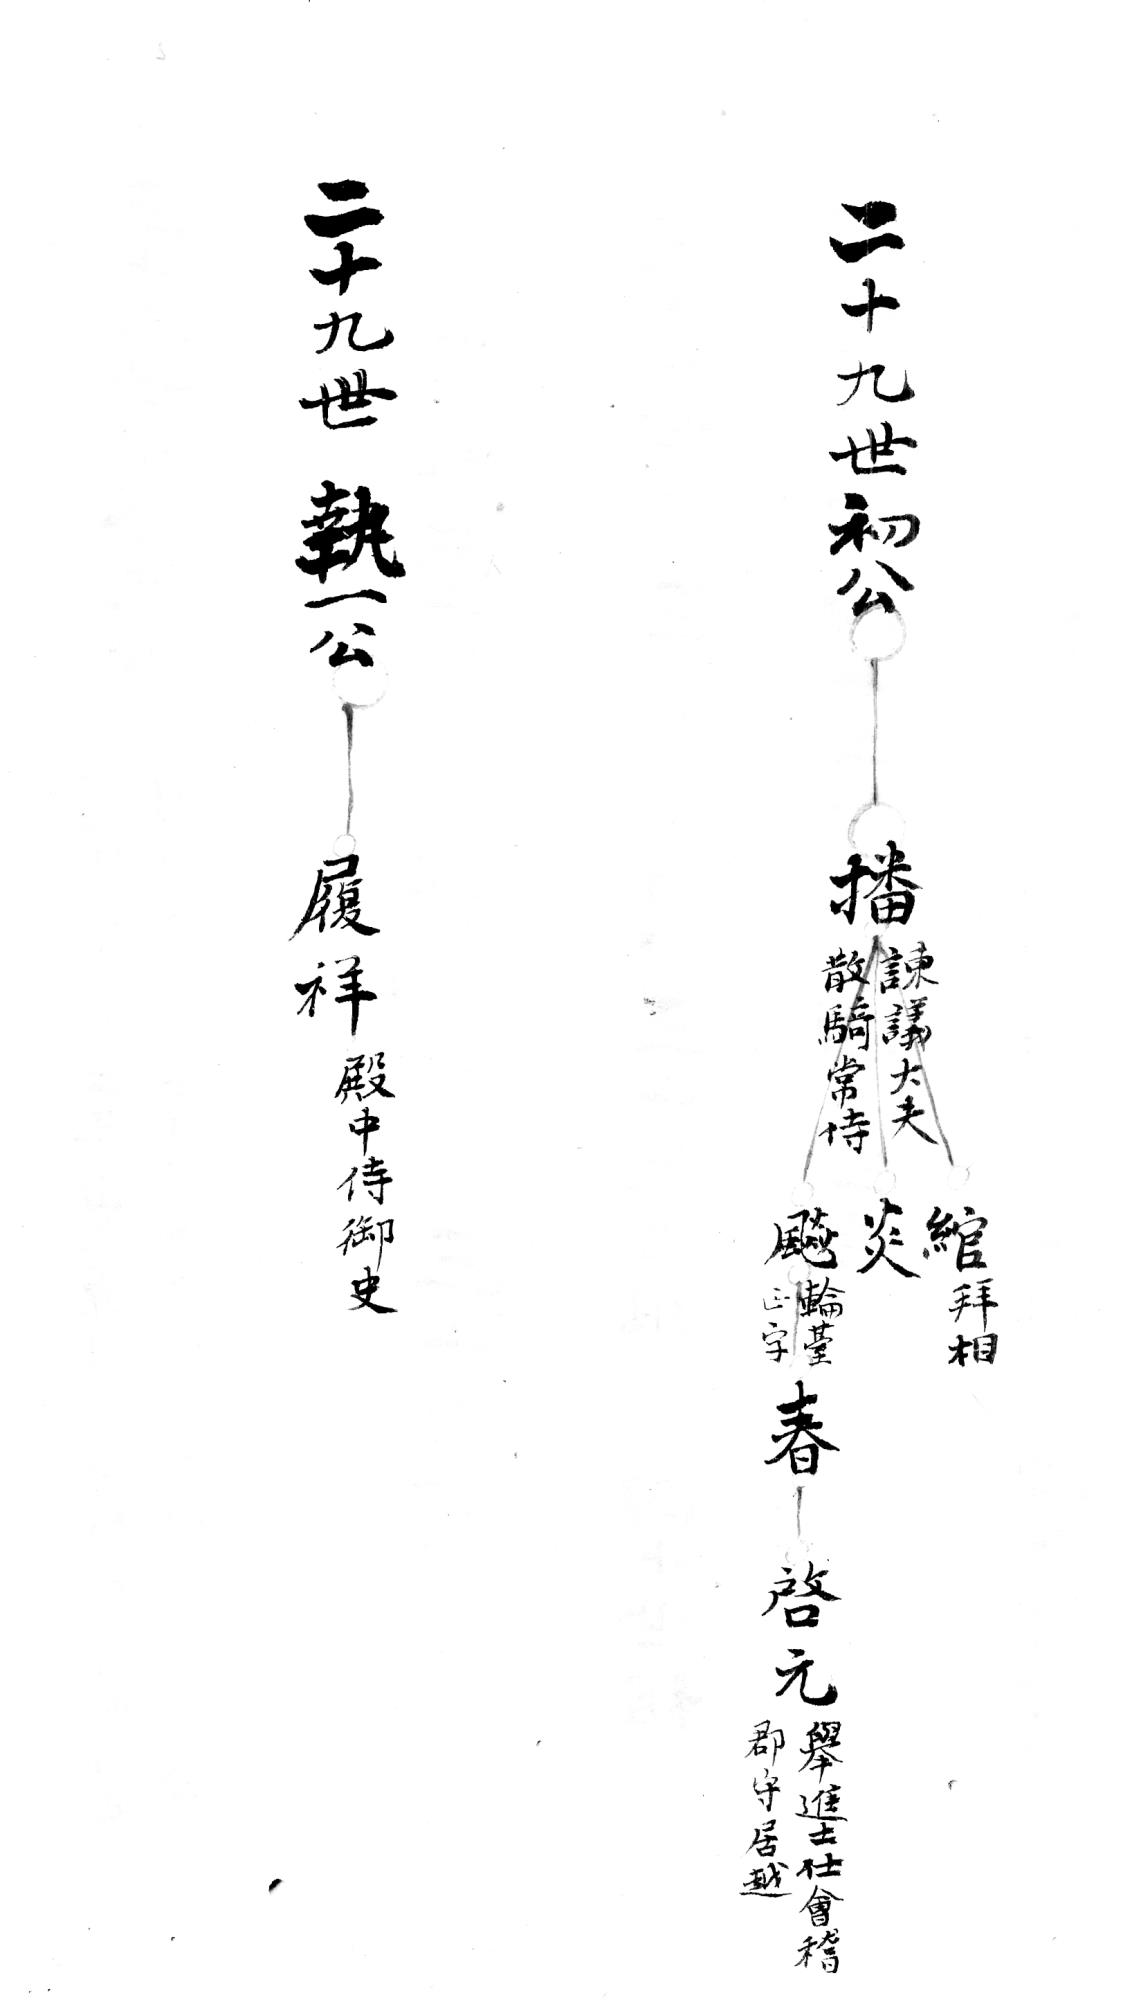 二十九世初公
播
諫議大夫
散騎常侍
綰
拜相
炎
颷
輪臺
正字
春
啓元
舉進士仕會稽
郡守居越
二十九世 執一公
履祥
殿中侍御史